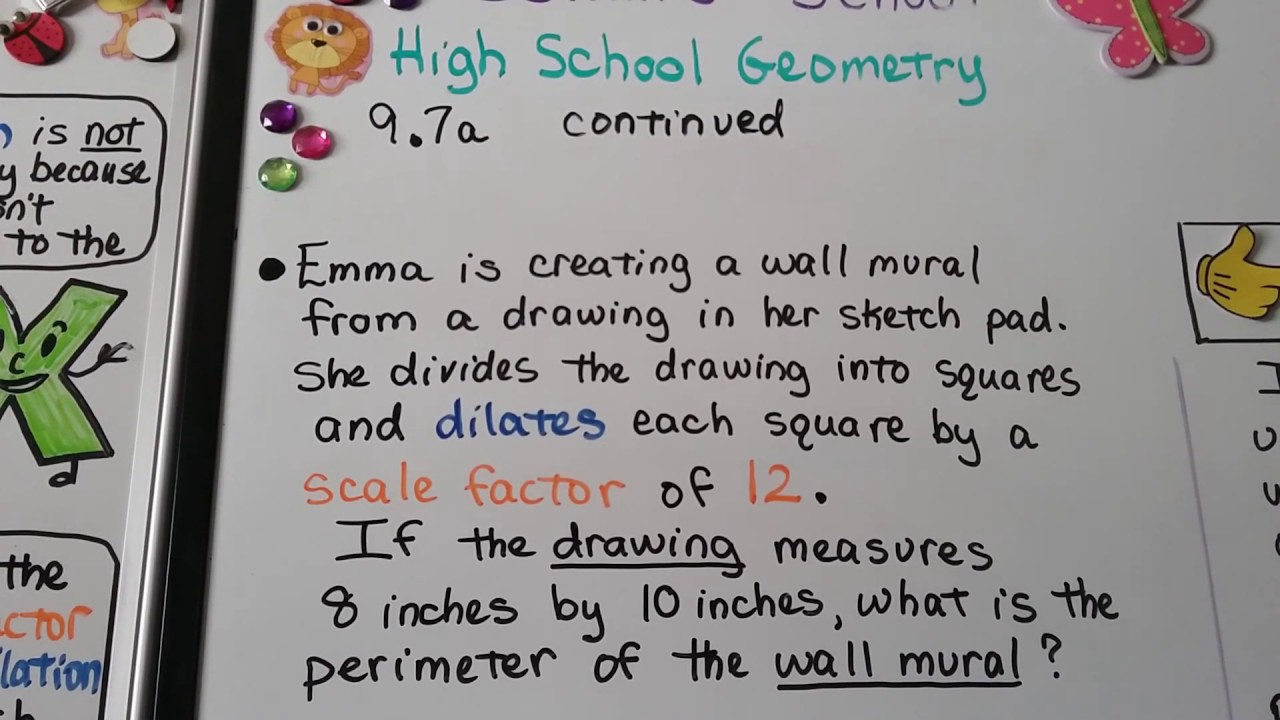 School
High School Geometry
9.7a continued
is not
because
to the
• Emma is creating a wall mural
from a drawing in her sketch pad.
She divides the drawing into squares
and dilates each square by a
scale factor of 12.
If the drawing measures
8 inches by 10 inches, what is the
perimeter of the wall mural?
c
the